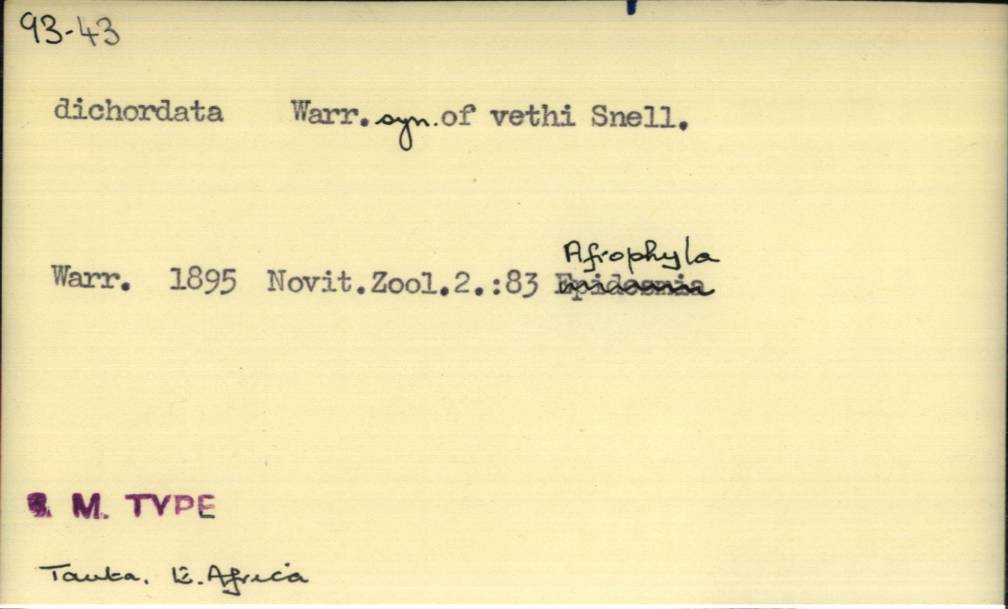 93-43
dichordata Warr. syn. of vethi Snell.
Afrophyla
Warr. 1895 Novit.Zool.2.:83
M. TYPE
E. Africa